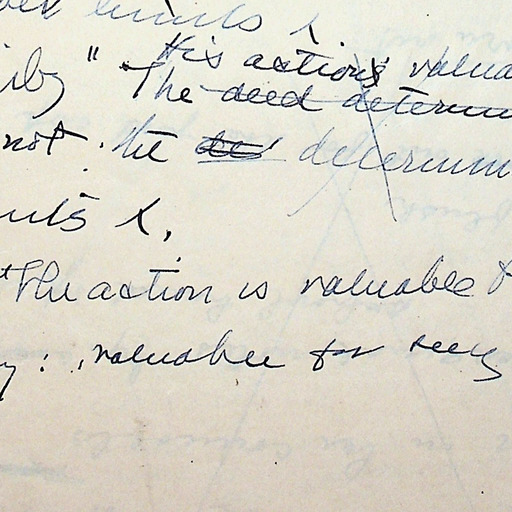 limits x
His actions valua
iby" "The deed determ
not. He determin
its x,
"The action is valuable
y: valuable for